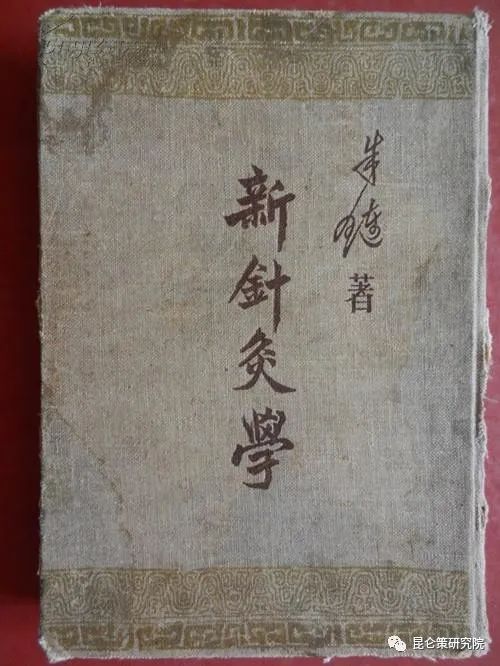 朱璉
著
新針灸學
昆仑策研究院